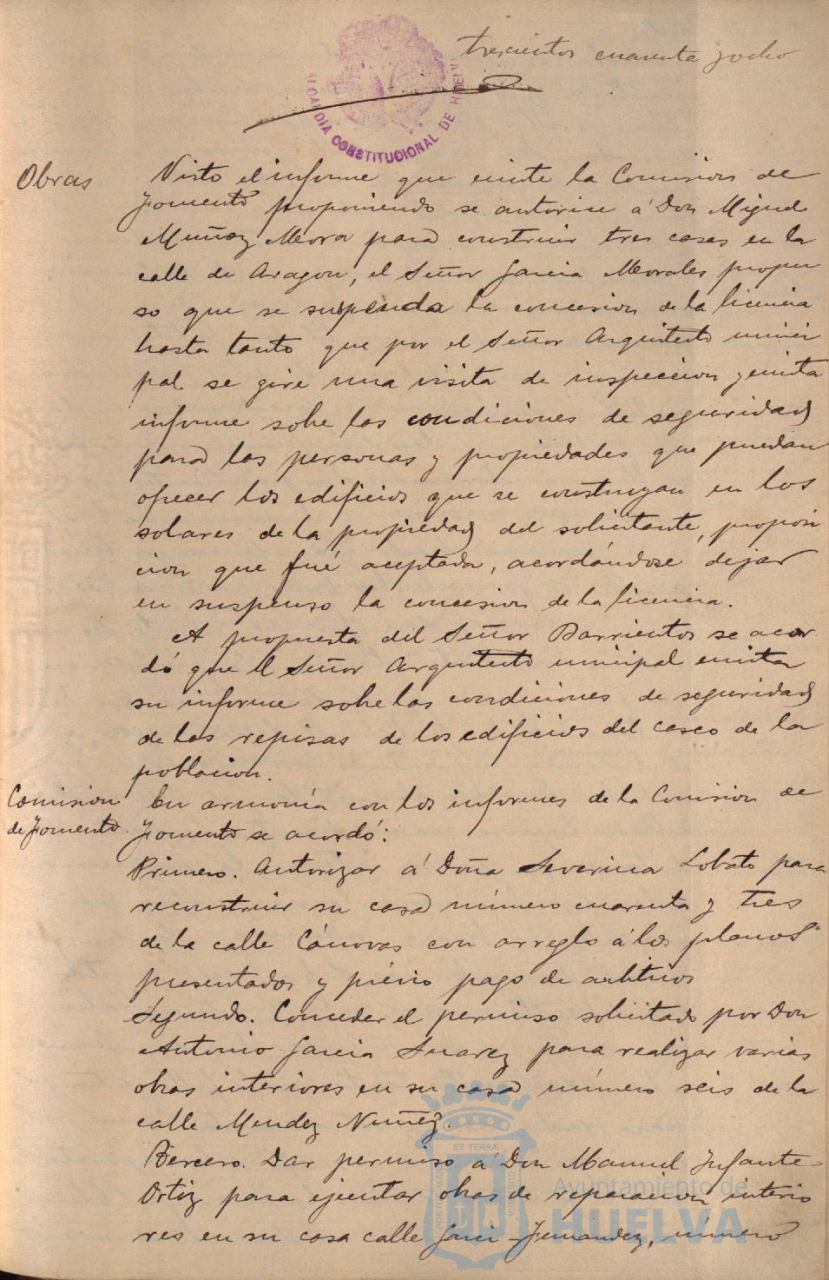 trescientos cuarenta y ocho
ALCALDIA CONSTITUCIONAL DE HUELVA
Obras
Visto el informe que emite la Comision de
Fomento proponiendo se autorise á Don Miguel
Muñoz Mora para construir tres casas en la
calle de Aragon, el Señor Garcia Morales propu
so que se suspenda la concesion de la licencia
hasta tanto que por el Señor Arquitecto munici
pal se gire una visita de inspeccion y emita
informe sobre las condiciones de seguridad
para las personas y propiedades que puedan
ofrecer los edificios que se construyan en los
solares de la propiedad del solicitante, proposi
cion que fué aceptada, acordándose dejar
en suspenso la concesion de la licencia.
A propuesta del Señor Barrientos se acor
dó que el Señor Arquitecto municipal emita
su informe sobre las condiciones de seguridad
de las repisas de los edificios del casco de la
poblacion.
Comision
de Fomento
En armonía con los informes de la Comision de
Fomento se acordó:
Primero. Autorizar á Doña Severina Lobato para
reconstruir su casa número cuarenta y tres
de la calle Cánovas con arreglo á los planos
presentados y prévio pago de arbitrios
Segundo. Conceder el permiso solicitado por Don
Antonio Garcia Suarez para realizar varias
obras interiores en su casa número seis de la
calle Mendez Nuñez.
Tercero. Dar permiso á Don Manuel Infante
Ortiz para ejecutar obras de reparacion interio
res en su casa calle Garci-Fernandez, número
Ayuntamiento de
HUELVA